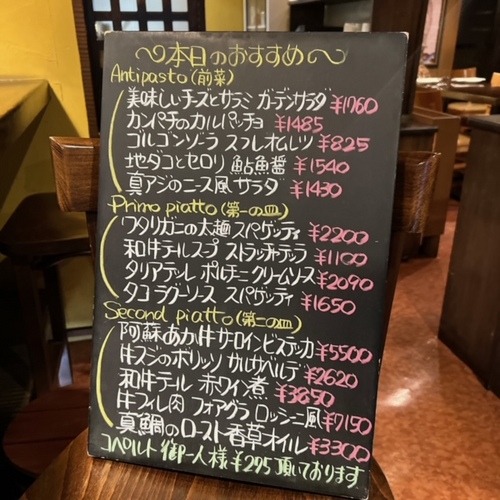 本日のおすすめ
Antipasto (前菜)
美味しいチーズとサラミ ガーデンサラダ ¥1760
カンパチのカルパッチョ ¥1485
ゴルゴンゾーラ スフレオムレツ ¥825
地ダコとセロリ 鮎魚醤 ¥1540
真アジのニース風 サラダ ¥1430
Primo piatto (第一の皿)
ワタリガニの太麺 スパゲッティ ¥2200
和牛テールスープ ストラッチャテッラ ¥1100
タリアテレ ポルチーニクリームソース ¥2090
タコ ラグーソース スパゲッティ ¥1650
Second piatto (第二の皿)
阿蘇あか牛サーロインビステッカ ¥5500
牛スジのボリッソ サルサベルデ ¥2620
和牛テール 赤ワイン煮 ¥3850
牛フィレ肉 フォアグラ ロッシーニ風 ¥7150
真鯛のロースト香草オイル ¥3300
コペルト 御一人様 ¥295 頂いております